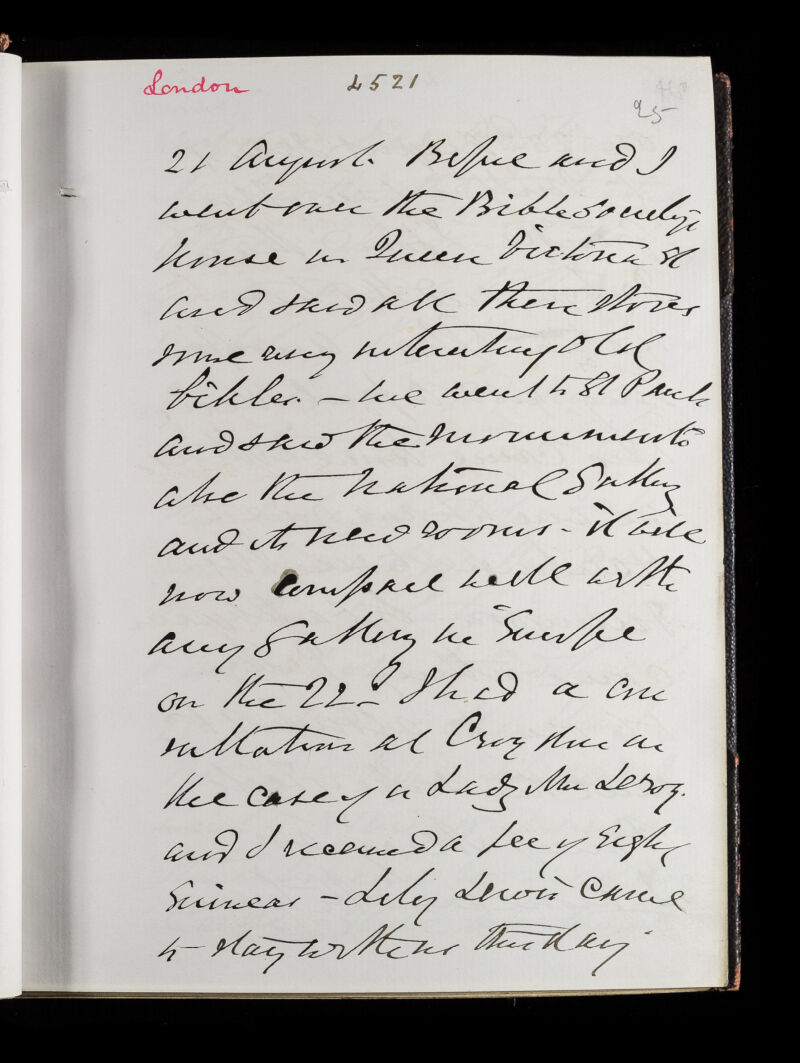 London 4521
95
21 August. Bessie and I
went over the Bible Society's
house in Queen Victoria St
and saw all their stores
some very interesting old
bibles. – We went to St Pauls
and saw the monuments
also the National Gallery
and its new rooms – it will
now compare well with
any Gallery in Europe
on the 22nd I had a con
sultation at Croydon in
the case of a Lady Mrs Leroy.
and I received a fee of Eight
Guineas – Lily Lewis came
to stay with us this day